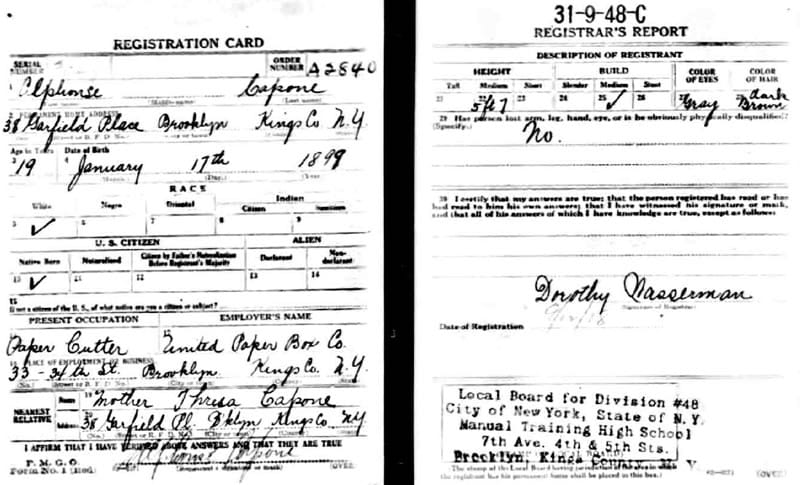 REGISTRATION CARD
SERIAL NUMBER
ORDER NUMBER A2840
1 Alphonse Capone
(First name) (Last name)
2 PERMANENT HOME ADDRESS
38 Garfield Place Brooklyn Kings Co N.Y.
Age in Years Date of Birth
3 19 4 January 17th 1899
(Month) (Day) (Year)
RACE
White Negro Oriental Indian
Citizen
5 ✓ 6 7 8 9
U. S. CITIZEN ALIEN
Native Born Naturalized Citizen by Father's Naturalization Before Registrant's Majority Declarant Non-declarant
10 ✓ 11 12 13 14
15
If not a citizen of the U. S., of what nation are you a citizen or subject?
PRESENT OCCUPATION EMPLOYER'S NAME
Paper Cutter United Paper Box Co.
PLACE OF EMPLOYMENT OR BUSINESS
33 - 34th St. Brooklyn Kings Co. N.Y.
(No.) (Street or R. F. D. No.) (City or town) (County) (State)
NEAREST RELATIVE
Name 19 Mother Thresa Capone
Address 20 38 Garfield Pl. Bklyn Kings Co NY
(No.) (Street or R. F. D. No.) (City or town) (County) (State)
I AFFIRM THAT I HAVE VERIFIED ABOVE ANSWERS AND THAT THEY ARE TRUE
P. M. G. O.
Form No. 1 (Red)
Capone
(OVER)
31-9-48-C
REGISTRAR'S REPORT
DESCRIPTION OF REGISTRANT
HEIGHT BUILD COLOR OF EYES COLOR OF HAIR
Tall Medium Short Slender Medium Stout
21 22 5 ft 7 23 24 25 ✓ 26 27 Gray dark Brown
29 Has person lost arm, leg, hand, eye, or is he obviously physically disqualified?
(Specify.) No.
30 I certify that my answers are true; that the person registered has read or has
had read to him his own answers; that I have witnessed his signature or mark,
and that all of his answers of which I have knowledge are true, except as follows:
Dorothy Wasserman
(Signature of Registrar)
Date of Registration
Local Board for Division #48
City of New York, State of N.Y.
Manual Training High School
7th Ave. 4th & 5th Sts.
Brooklyn, Kings County N.Y.
(The stamp of the Local Board having jurisdiction of the area in which
the registrant has his permanent home shall be placed in this box.)
(OVER)